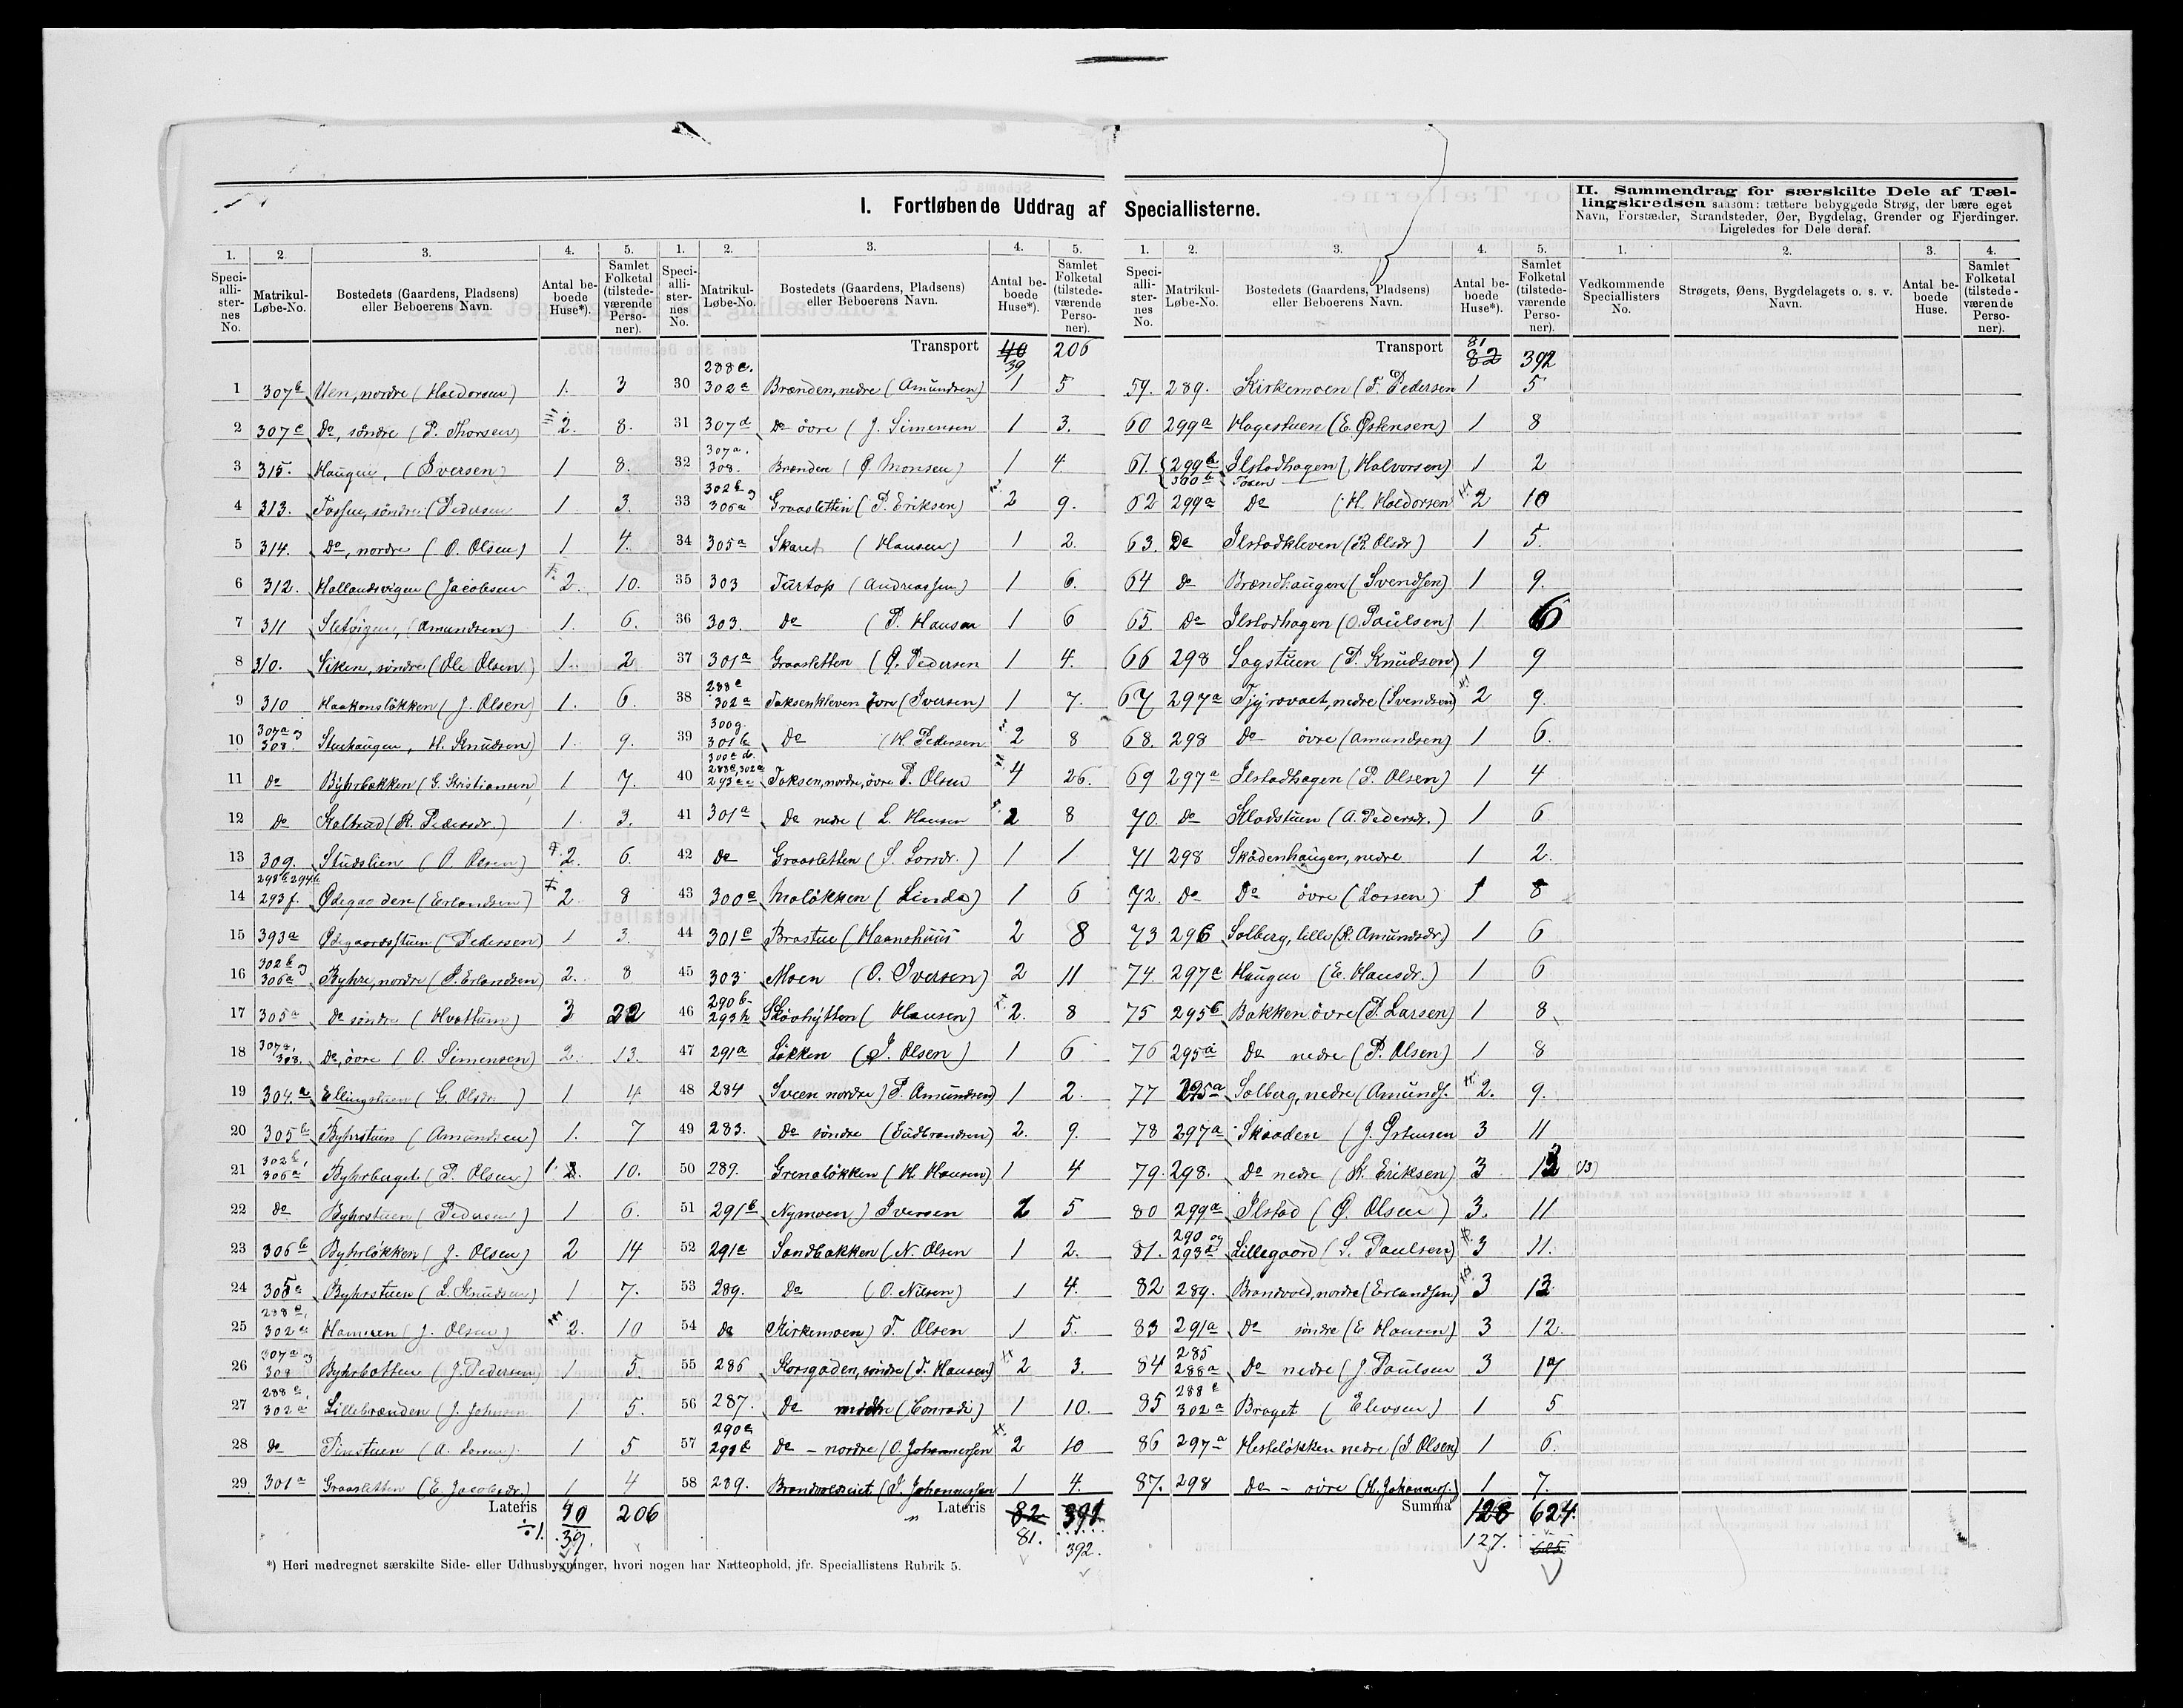 I. Fortløbende Uddrag af Speciallisterne.
II. Sammendrag for særskilte Dele af Tæl-
lingskredsen saasom: tættere bebyggede Strøg, der bære eget
Navn, Forstæder, Strandsteder, Øer, Bygdelag, Grender og Fjerdinger.
Ligeledes for Dele deraf.
1. 2. 3. 4. 5.
Speci-alli-ster-nes No. Matrikul-Løbe-No. Bostedets (Gaardens, Pladsens) eller Beboerens Navn. Antal be-boede Huse*). Samlet Folketal (tilstede-værende Perso-ner).
1 307b Uen, nordre (Haldorsen) 1. 3
2 307c Do, söndre (P. Thorsen) 2. 8.
3 315. Haugen, (Iversen) 1 8.
4 313. Fossen, söndre (Pedersen 1 3.
5 314. Do, nordre (O. Olsen) 1 4.
6 312. Hollandsvigen (Jacobsen 2. 10.
7 311 Sletvigen, (Amundsen) 1. 6.
8 310. Viken, söndre (Ole Olsen) 1. 2
9 310 Haakonslökken (J. Olsen) 1. 6.
10 307a og 308. Stuehaugen, H. Knudsen) 1. 9.
11 do Byhrbakken (G. Kristiansen) 1 7.
12 do Kalbrud (R. Pedersdr.) 1. 3.
13 309. Studslien (O. Olsen) 2. 6.
14 298b 294b 293f. Ødegaarden (Erlandsen) 2 8
15 393a Ødegaardsstuen (Pedersen) 1 3.
16 302b og 306a Byhre, nordre (P. Erlandsen) 2. 8
17 305a do söndre (Hvattum) 3 22
18 307a, 308. Do, övre (O. Simensen) 2. 13.
19 304.a Ellingstuen (G. Olsdr.) 1 4.
20 305b Byhrstuen (Amundsen) 1. 7
21 302b, 306a Byhrberget (P. Olsen) 1. 10.
22 do Byhrstuen (Pedersen) 1 6.
23 306b Byhrlökken (J. Olsen) 2 14
24 305a Byhrstuen (L. Knudsen) 1 7.
25 288c, 302a Hamren (J. Olsen) 2. 10
26 307a og 308 Byhrbotten (J. Pedersen) 1 5.
27 288c, 302a Lillebrænden (J. Johnsen 1. 5.
28 do Pinstuen (A. Larsen) 1 5
29 301a Graasletten (E. Jacobsdr.) 1 4
Lateris 40 206
÷1. 39.
1. 2. 3. 4. 5.
Speci-alli-ster-nes No. Matrikul-Løbe-No. Bostedets (Gaardens, Pladsens) eller Beboerens Navn. Antal be-boede Huse*). Samlet Folketal (tilstede-værende Perso-ner).
Transport 40 39 206
30 288c. 302a Brænden, nedre (Amundsen) 1 5
31 307d Do övre (J. Simensen 1 3.
32 307a. 308. Brænden (O. Monsen) 1 4.
33 302b og 306a Graasletten (P. Eriksen) 2 9.
34 305a Skaret (Hansen) 1 2.
35 303 Turtop (Andreassen) 1 6.
36 303. Do (P. Hansen 1 6
37 301a Graasletten (O. Pedersen 1 4.
38 288c 302a Taksenkleven övre (Iversen) 1 7.
39 300g. 301b Do (H. Pedersen 2 8
40 300a do. 288c, 302a 293a Toksen, nordre, övre P. Olsen 4 26.
41 301a Do nedre (L. Hansen 2 8
42 do Graasletten (S. Larsdr.) 1 1
43 300a Molökken (Linda) 1 6
44 301c Brastue (Haanshuus 2 8
45 303. Moen (O. Iversen) 2 11
46 290b 293h Skövhytten (Hansen) 2. 8
47 291a Lökken (J. Olsen) 1 6
48 284 Sveen nordre) P. Amundsen) 1 2.
49 283. Do söndre (Gudbrandsen) 2. 9.
50 289. Grenalökken (H. Hansen) 1 4
51 291b Nymoen) Iversen 2 5
52 291c Sandbakken (N. Olsen 1 2.
53 289. Do (O. Nilsen) 1 4.
54 do Kirkemoen) T. Olsen 1 5.
55 286 Korsgaden, söndre (T. Hansen) 2 3.
56 287. Do (Conradi) 1 10.
57 290a Do - nordre (O. Johannessen 2 10
58 289. Brandvoldseiet (J. Johannessen 1 4.
Lateris 82 391
81. 392.
1. 2. 3. 4. 5.
Speci-alli-ster-nes No. Matrikul-Løbe-No. Bostedets (Gaardens, Pladsens) eller Beboerens Navn. Antal be-boede Huse*). Samlet Folketal (tilstede-værende Perso-ner).
Transport 81 82 392
59. 289. Kirkemoen (T. Pedersen 1 5
60 299a Hagestuen (E. Østensen) 1 8
61. 299b 300b Ilstadhagen (Halvorsen) 1 2
62 299a Do (H. Haldorsen 2 10
63. Do Ilstadkleven (R. Olsdr.) 1 5.
64 do Brændhaugen (Svendsen) 1 9.
65. Do Ilstadhagen (O. Paulsen) 1 6
66 298 Sagstuen (P. Knudsen) 1 9
67 297a Tjyrovaet, nedre (Svendsen) 2 9.
68. 298 Do övre (Amundsen) 1 6.
69 297a Ilstadhagen (P. Olsen) 1 4
70. do Kladstuen (A. Pedersdr.) 1 6
71 298 Skådenhaugen, nedre 1 2.
72. do Do övre (Larsen) 1 8
73 296 Solberg, lille (R. Amundsdr.) 1 6
74. 297c Haugen (E. Hansdr.) 1 6
75 295b Bakken övre (P. Larsen) 1 8
76 295a Do nedre (P. Olsen) 1 8
77 295a Solberg, nedre (Amunds. 2. 9.
78 297a Skaaden (J. Østensen 3 11
79. 298. Do nedre (K. Eriksen) 3 13 (13)
80 299a Ilstad (O. Olsen) 3. 11
81. 290 og 293d Lillegaard (S. Paulsen) 3 11.
82 289. Brandvold, nordre (Erlandsen) 3 13
83 291a Do söndre (E Hansen) 3 12.
84 285 288a Do nedre (J. Paulsen 3 17
85 288c 302a Braget (Elevsen) 1 5
86 297a Hestelökken nedre (J Olsen) 1 6.
87. 298 do - övre (H. Johanness.) 1 7.
Summa 128 624.
127. 625
1. 2. 3. 4.
Vedkommende Speciallisters No. Strøgets, Øens, Bygdelagets o. s. v. Navn. Antal be-boede Huse. Samlet Folketal (tilstede-værende Perso-ner).
*) Heri medregnet særskilte Side- eller Udhusbygninger, hvori nogen har Natteophold, jfr. Speciallistens Rubrik 5.